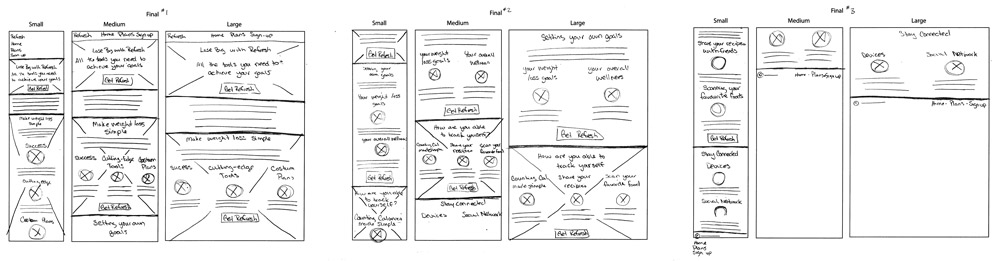 Final #1
Small
Medium
Large
Refresh
Home
Plans
Sign up
Lose Big with Refresh
All the tools you need
to achieve your goals
Get Refresh
Make weight loss
Simple
Success
Cutting-edge
Custom Plans
Refresh Home Plans Sign up
Lose Big with Refresh
All the tools you need to
achieve your goals
Get Refresh
Make weight loss
Simple
Success
Cutting-Edge
Tools
Custom
Plans
Get Refresh
Setting your own
goals
Refresh Home Plans Sign-up
Lose Big with Refresh
All the tools you need to
achieve your goals
Get Refresh
Make weight loss simple
Sucess
Cutting-edge
Tools
Costum
Plans
Get Refresh
Final #2
Small
Medium
Large
Get Refresh
Setting your
own goals
Your weight loss
goals
your overall wellness
Get Refresh
How are you able
to track
yourself?
Counting Calories
made simple
your weight
loss goals
Your overall
wellness
Get Refresh
How are you able
to track yourself
Counting Cal
made simple
Share your
recipes
Scan your
favourite food
Get Refresh
Stay connected
Devices
Social Network
Setting your own goals
your weight
loss goals
your overall
wellness
Get Refresh
How are you able to
track yourself
Counting Cal
made simple
Share your
recipes
Scan your
favorite food
Get Refresh
Final #3
Small
Medium
Large
Share your recipes
with friends
Scanning your
favourite foods
Get Refresh
Stay Connected
Devices
Social Network
Home
Plans
Sign up
Home - Plans Sign up
Stay Connected
Devices
Social Network
Home - Plans - Sign up